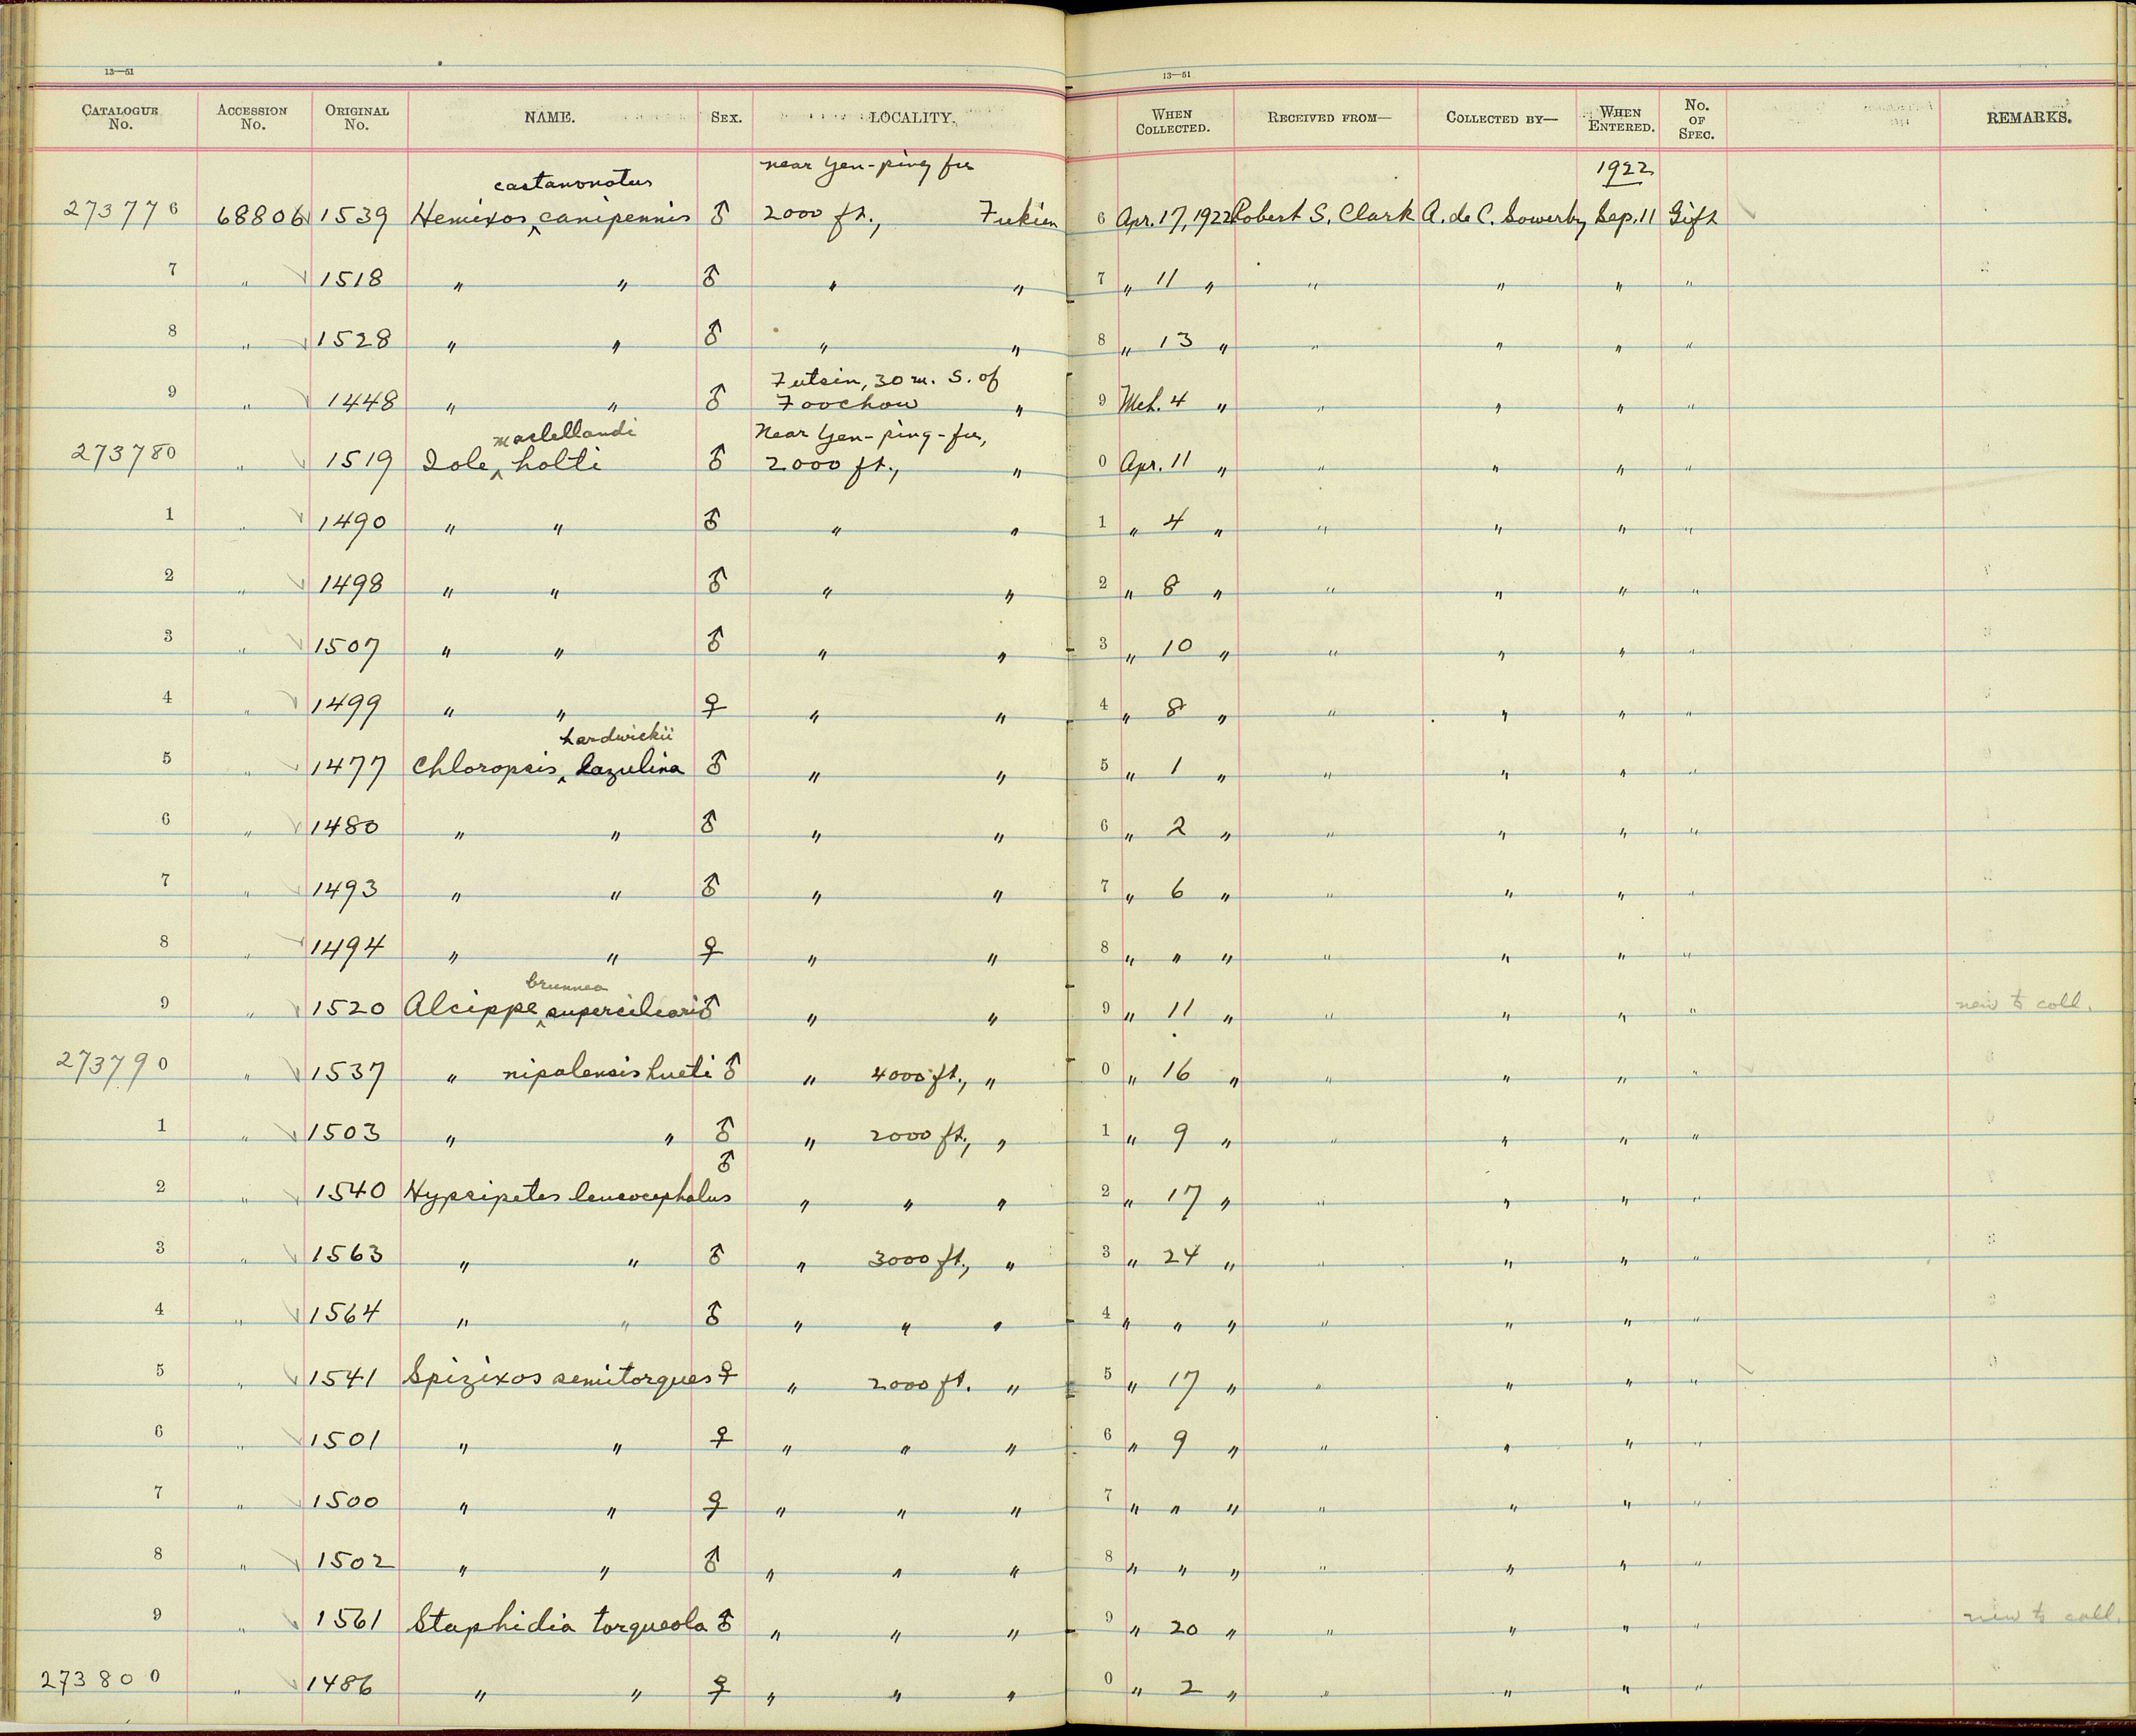 13—51 13—51
CATALOGUE No. ACCESSION No. ORIGINAL No. NAME. SEX. LOCALITY. WHEN COLLECTED. RECEIVED FROM— COLLECTED BY— WHEN ENTERED. No. OF SPEC. REMARKS.
near Yen-ping fu 1922
castanonotus
273776 68806 1539 Hemixos ^ canipennis ♂ 2000 ft., Fukien 6 Apr. 17, 1922 Robert S. Clark A. de C. Sowerby Sep. 11 Gift ✓
7 " ✓ 1518 " " ♂ " " 7 " 11 " " " " "
8 " ✓ 1528 " " ♂ " " 8 " 13 " " " " "
Futsin, 30 m. S. of
9 " ✓ 1448 " " ♂ Foochow " 9 Mch. 4 " " " " "
maclellandi Near Yen-ping-fu,
273780 " ✓ 1519 Iole ^ holti ♂ 2000 ft., " 0 Apr. 11 " " " " "
1 " ✓ 1490 " " ♂ " " 1 " 4 " " " " "
2 " ✓ 1498 " " ♂ " " 2 " 8 " " " " "
3 " ✓ 1507 " " ♂ " " 3 " 10 " " " " "
4 " ✓ 1499 " " ♀ " " 4 " 8 " " " " "
hardwickii
5 " ✓ 1477 Chloropsis ^ lazulina ♂ " " 5 " 1 " " " " "
6 " ✓ 1480 " " ♂ " " 6 " 2 " " " " "
7 " ✓ 1493 " " ♂ " " 7 " 6 " " " " "
8 " ✓ 1494 " " ♀ " " 8 " " " " " " "
brunnea
9 " ✓ 1520 Alcippe ^ superciliaris ♂ " " 9 " 11 " " " " " new to coll.
273790 " ✓ 1537 " nipalensis hueti ♂ " 4000 ft., " 0 " 16 " " " " "
1 " ✓ 1503 " " ♂ " 2000 ft., " 1 " 9 " " " " "
♂
2 " ✓ 1540 Hypsipetes leucocephalus " " " 2 " 17 " " " " "
3 " ✓ 1563 " " ♂ " 3000 ft., " 3 " 24 " " " " "
4 " ✓ 1564 " " ♂ " " " 4 " " " " " " "
5 " ✓ 1541 Spizixos semitorques ♀ " 2000 ft. " 5 " 17 " " " " " ✓
6 " ✓ 1501 " " ♀ " " " 6 " 9 " " " " "
7 " ✓ 1500 " " ♀ " " " 7 " " " " " " "
8 " ✓ 1502 " " ♂ " " " 8 " " " " " " "
9 " ✓ 1561 Staphidia torqueola ♂ " " " 9 " 20 " " " " " new to coll.
273800 " ✓ 1486 " " ♀ " " " 0 " 2 " " " " "